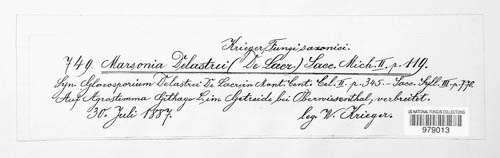 Krieger, Fungi saxonici.
749. Marsonia Delastrei (De Lacr.) Sacc. Mich. II. p. 119.
Syn. Gloeosporium Delastrei De Lacroix Mont. Cent. Cel. II. p. 345. – Sacc. Syll. III. p. 770.
Auf Agrostemma Githago L. im Getreide bei Oberwiesenthal, verbreitet.
30. Juli 1887. leg. W. Krieger.
US NATIONAL FUNGUS COLLECTIONS
979013